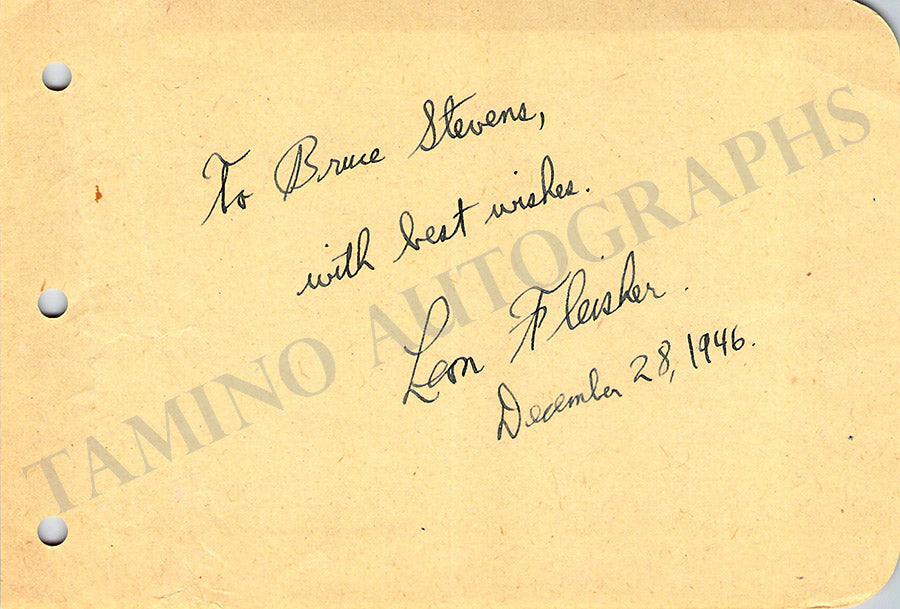 To Bruce Stevens,
with best wishes.
Leon Fleisher.
December 28, 1946.
TAMINO AUTOGRAPHS